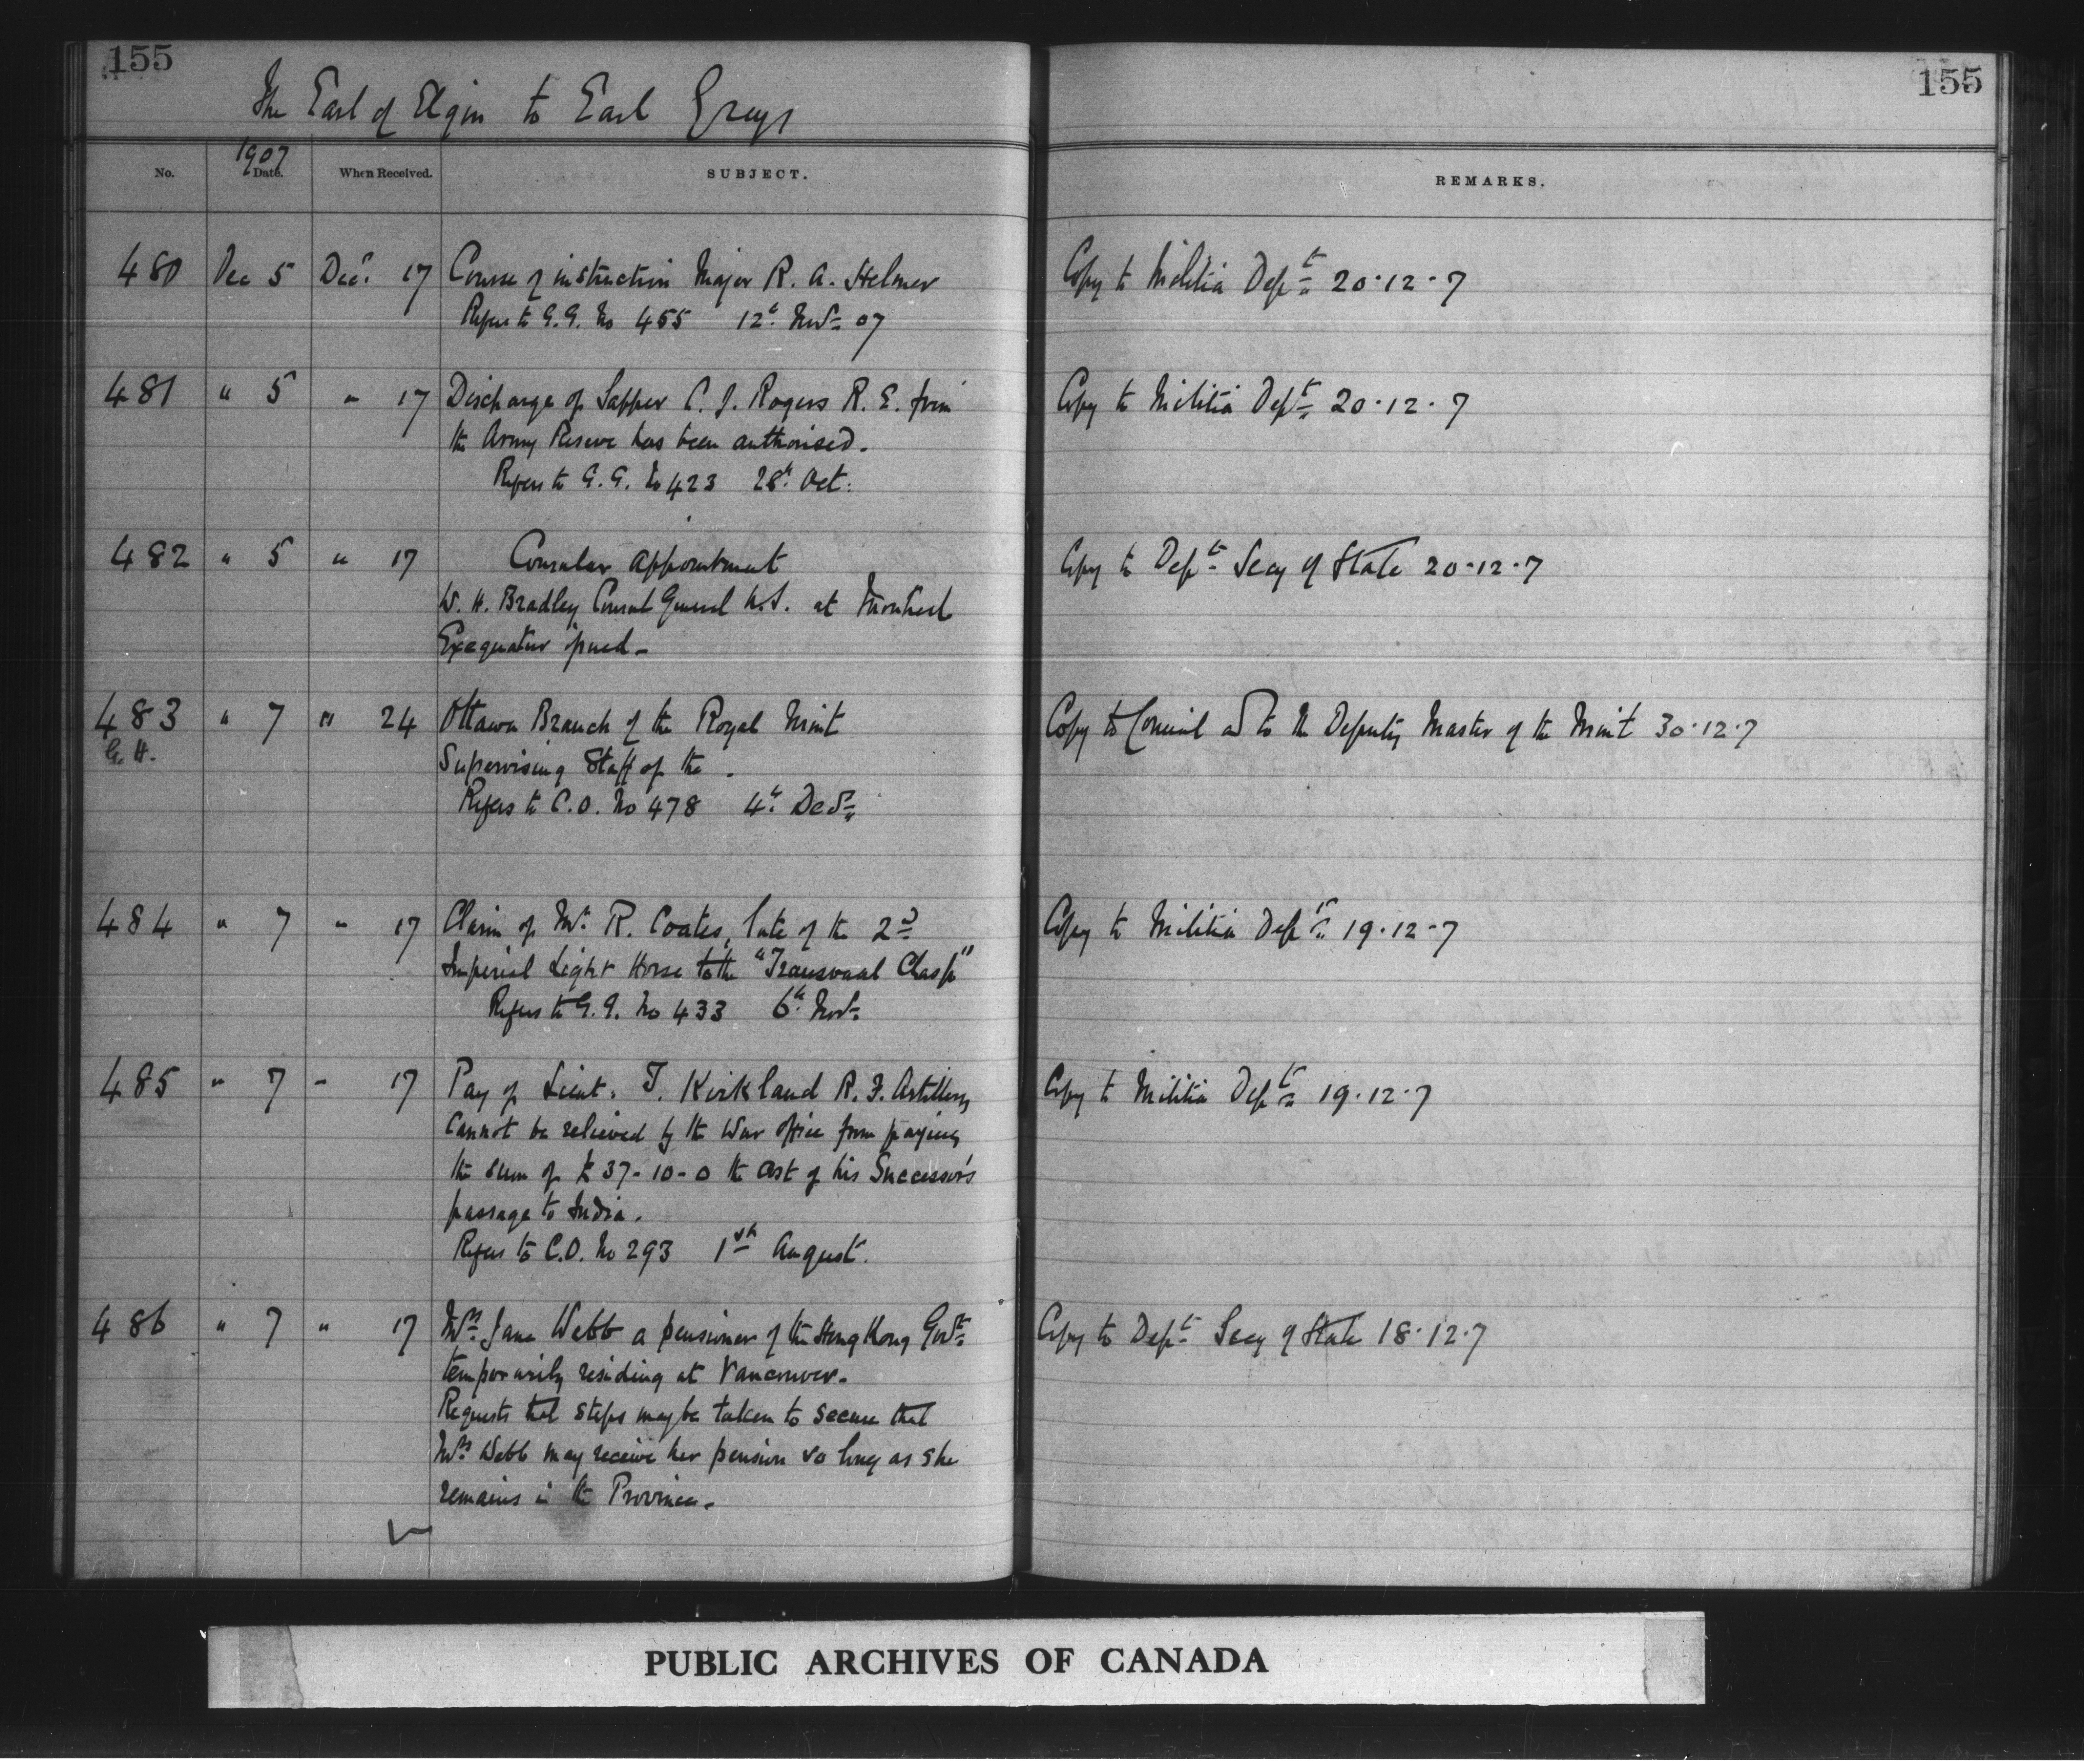 155
155
The Earl of Elgin to Earl Grey
No. 1907 Date. When Received. SUBJECT. REMARKS.
480 Dec 5 Decr. 17 Course of instruction Major R. A. Helmer Copy to Militia Dept 20.12.7
Refers to G.G. No 455 12th Novr 07
481 " 5 " 17 Discharge of Sapper C. J. Rogers R. E. from Copy to Militia Dept 20.12.7
the Army Reserve has been authorised.
Refers to G.G. No 423 28th Oct:
482 " 5 " 17 Consular appointment Copy to Dept Secy of State 20.12.7
W. H. Bradley Consul General U.S. at Montreal
Exequatur issued -
483 " 7 " 24 Ottawa Branch of the Royal Mint Copy to Council and to the Deputy Master of the Mint 30.12.7
G. H. Supervising Staff of the .
Refers to C.O. No 478 4th Decr
484 " 7 " 17 Claim of Mr R. Coates, late of the 2nd Copy to Militia Dept 19.12.7
Imperial Light Horse to the "Transvaal Clasp"
Refers to G.G. No 433 6th Novr
485 " 7 " 17 Pay of Lieut. T. Kirkland R. F. Artillery Copy to Militia Dept 19.12.7
Cannot be relieved by the War Office from paying
the sum of £37-10-0 the cost of his Successor's
passage to India.
Refers to C.O. No 293 1st August.
486 " 7 " 17 Mrs Jane Webb a pensioner of the Hong Kong Govt Copy to Dept Secy of State 18.12.7
temporarily residing at Vancouver.
Requests that steps may be taken to secure that
Mrs Webb may receive her pension so long as she
remains in the Province.
PUBLIC ARCHIVES OF CANADA